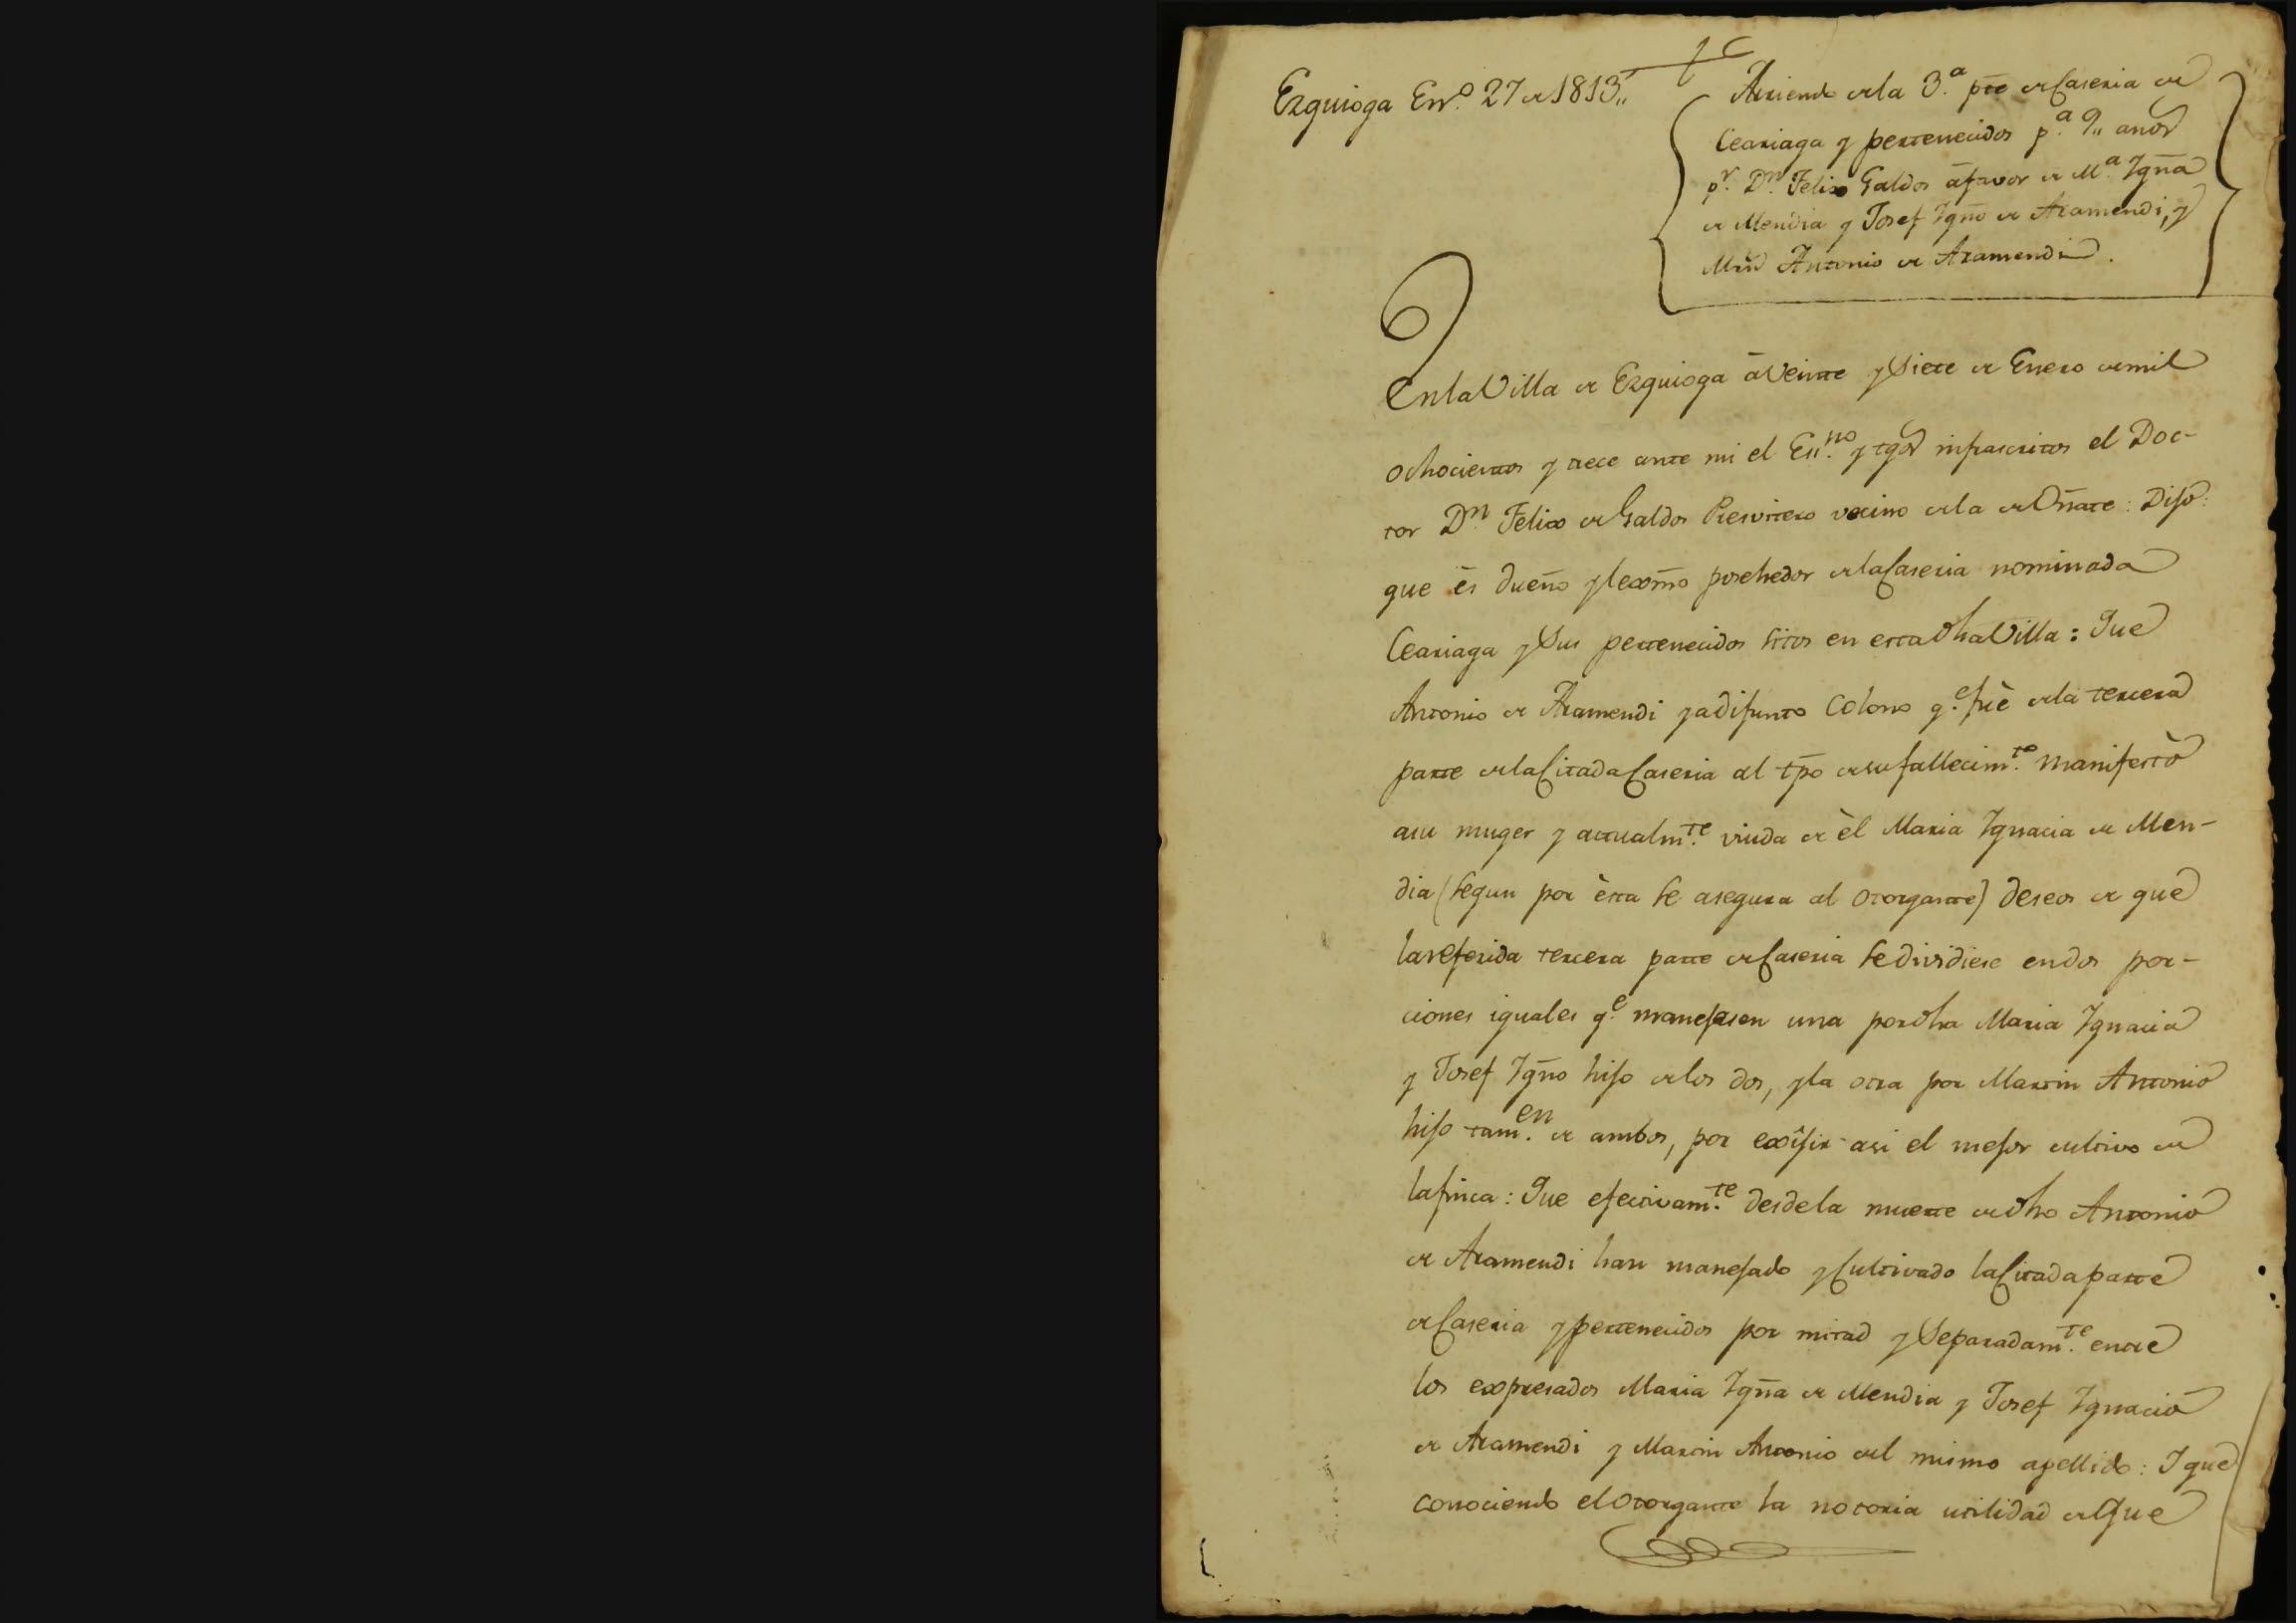 Ezquioga En.º 27 de 1813,,
Arriendo de la 3.ª pte de Caseria de
Ceariaga y pertenecidos p.ª 9,, años
p.r D.n Felix Galdos á favor de M.ª Ygña
de Mendia y Josef Ygño de Aramendi, y
Mrñ Antonio de Aramendi.
En la Villa de Ezquioga á Veinte y Siete de Enero de mil
ochocientos y trece ante mi el Es.no y tgos infrascritos el Doc-
tor D.n Felix de Galdos Presvitero vecino de la de Oñate: Dijo:
que és dueño y lexmo posehedor de la Caseria nominada
Ceariaga y Sus pertenecidos sitos en esta dha Villa: Que
Antonio de Aramendi ya difunto Colono q.e fué de la tercera
parte de la Citada Caseria al tpo de su fallecim.to manifestò
a su muger y actualm.te viuda de èl Maria Ygnacia de Men-
dia (segun por èsta se asegura al otorgante) deseos de que
la referida tercera parte de Caseria se dividiese en dos por-
ciones iguales q.e manejasen una por dha Maria Ygnacia
y Josef Ygño hijo de los dos, y la otra por Martin Antonio
hijo tam.en de ambos, por exîjir asi el mejor cultivo de
la finca: Que efectivam.te desde la muerte de dho Antonio
de Aramendi han manejado y Cultivado la Citada parte
de Caseria y pertenecidos por mitad y Separadam.te entre
los expresados Maria Ygña de Mendia y Josef Ygnacio
de Aramendi y Martin Antonio del mismo apellido: Y que
conociendo el otorgante la notoria utilidad de que